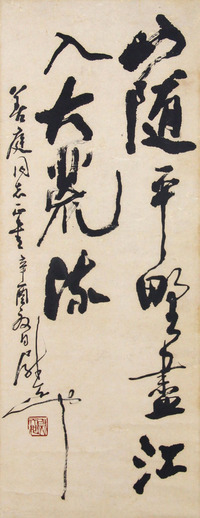 山随平野盡江
入大荒流
善庭同志正書辛酉夏日